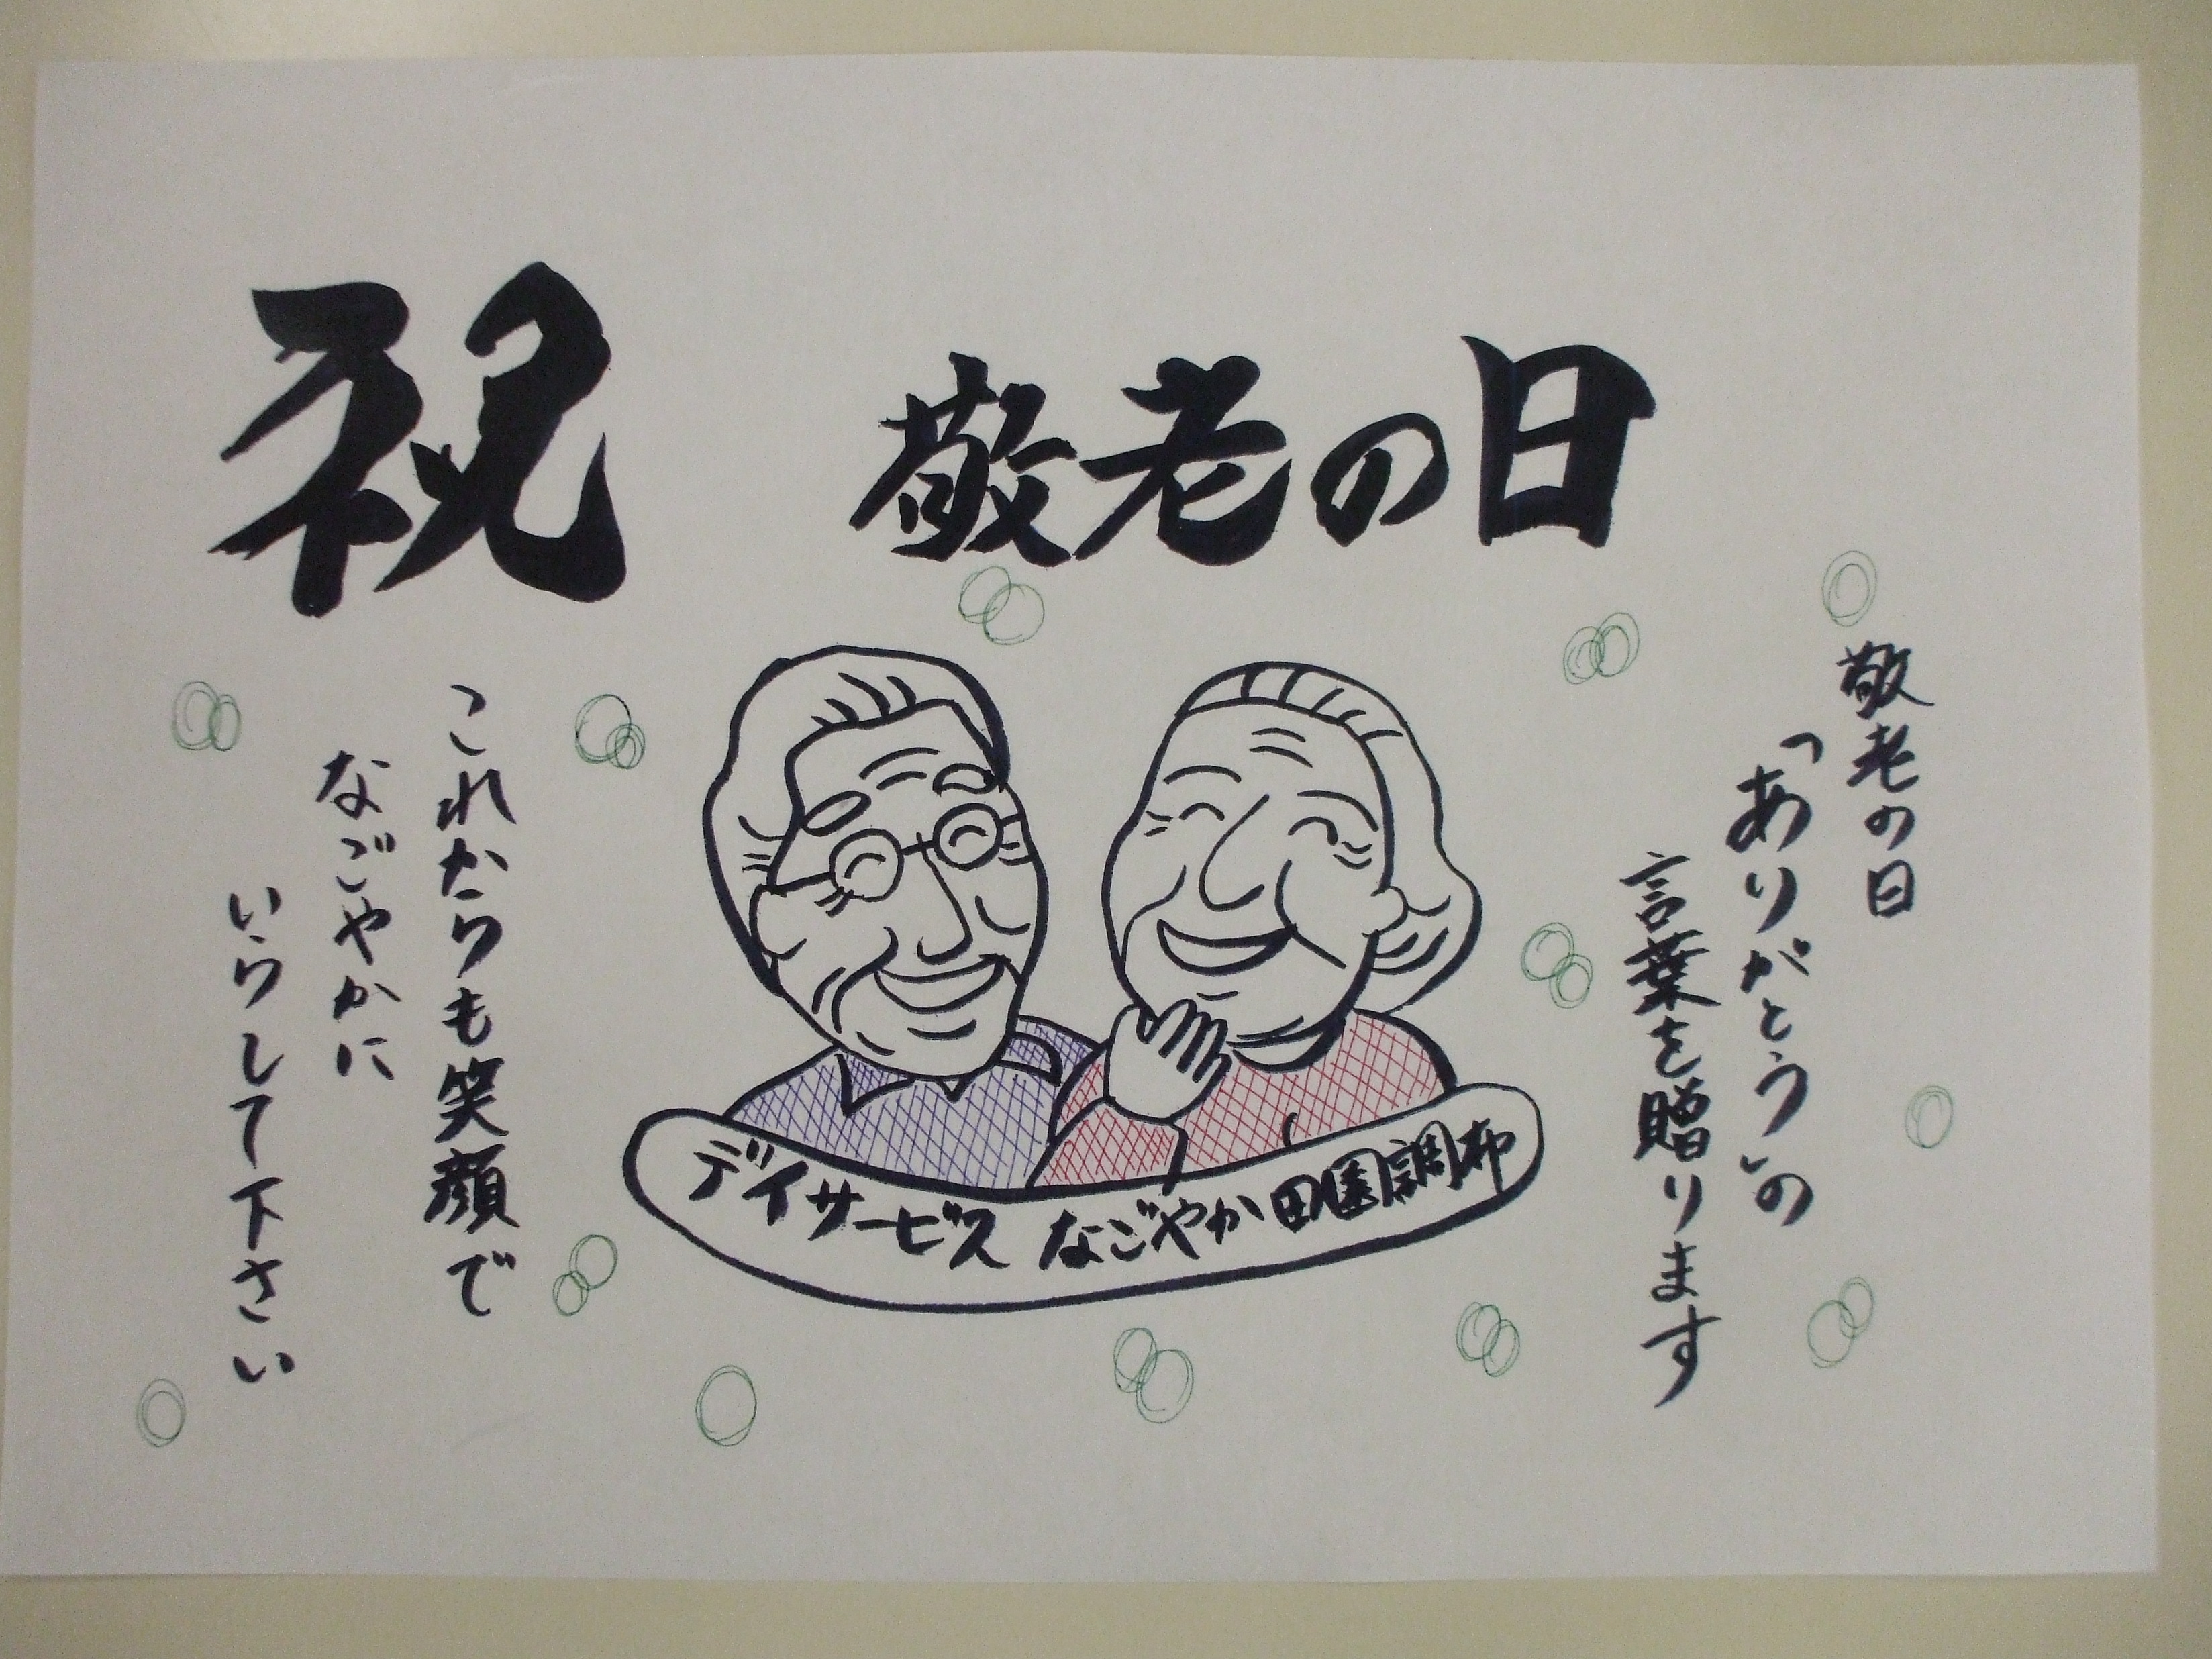 祝 敬老の日
敬老の日
「ありがとう」の
言葉を贈ります
これからも笑顔で
なごやかに
いらして下さい
デイサービス なごやか田園調布